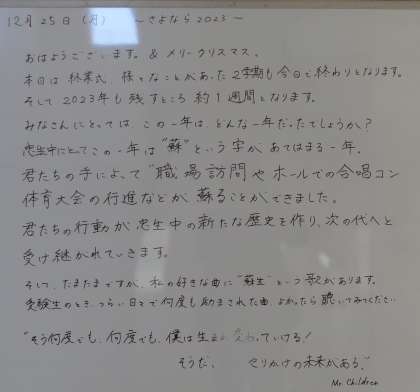 12月25日(月) ～さよなら2023～
おはようございます。&メリークリスマス。
本日は終業式。様々なことがあった2学期も今日で終わりとなります。
そして2023年も残すところ約1週間となります。
みなさんにとっては、この一年は、どんな一年だったでしょうか?
忠生中にとってこの一年は"蘇"という字があてはまる一年。
君たちの手によって"職場訪問やホールでの合唱コン
体育大会の行進などが蘇ることができました。
君たちの行動が忠生中の新たな歴史を作り、次の代へと
受け継がれていきます。
そして、たまたまですが、私の好きな曲に"蘇生"という歌があります。
受験生のとき、つらい日々で何度も励まされた曲、よかったら聴いてみてください
"そう何度でも、何度でも、僕は生まれ変わっていける!
そうだ、 やりかけの未来がある"
Mr. Children